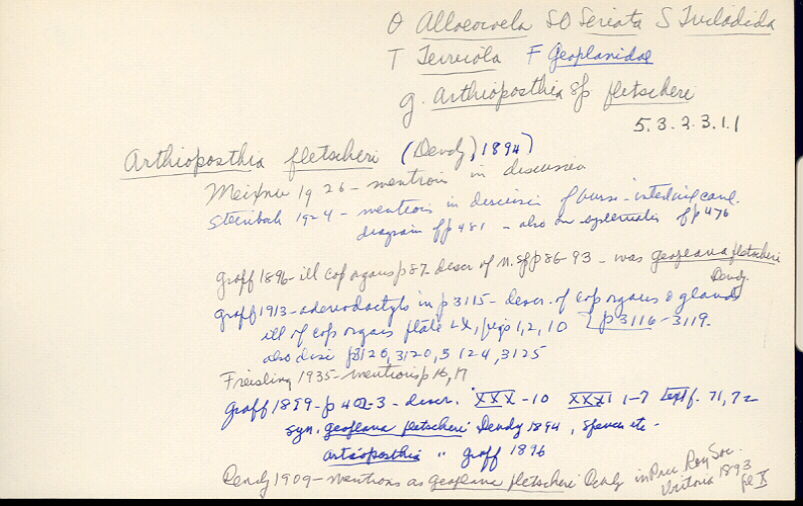 O Alloeocoela SO Seriata S Tricladida
T Terricola F Geoplanidae
g. Arthioposthia sp fletscheri
5.3.2.3.1.1
Arthioposthia fletscheri (Dendy, 1894)
Meixner 1926 - mention in discussion
Steinbock 1924 - mentions in discussion of bursa - intestinal canal.
diagram of p 481 - also on systematics of p 476
Graff 1896 - ill cop organs p 87 - descr of n. sp p 86-93 - was geoplana fletscheri
Dendy
Graff 1913 - adenodactyls in p 3115 - descr. of cop organs & glands
ill of cop organs plate LX, figs 1, 2, 10 } p 3116-3119.
also disc p 3120, 3124, 3125
Freisling 1935 - mentions p 16, 17
Graff 1899 - p 402-3 - descr. XXX-10 XXXI 1-7 textf. 71, 72
syn. geoplana fletscheri Dendy 1894, spencer etc -
artioposthia " Graff 1896
Dendy 1909 - mentions as geoplana fletscheri Dendy in Proc Roy Soc.
Victoria 1893
pl X